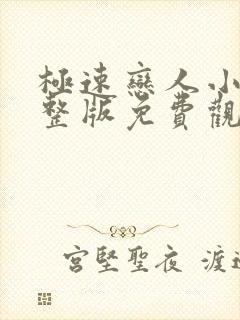 極速戀人小
整版免費觀
宮堅聖夜 渡邊